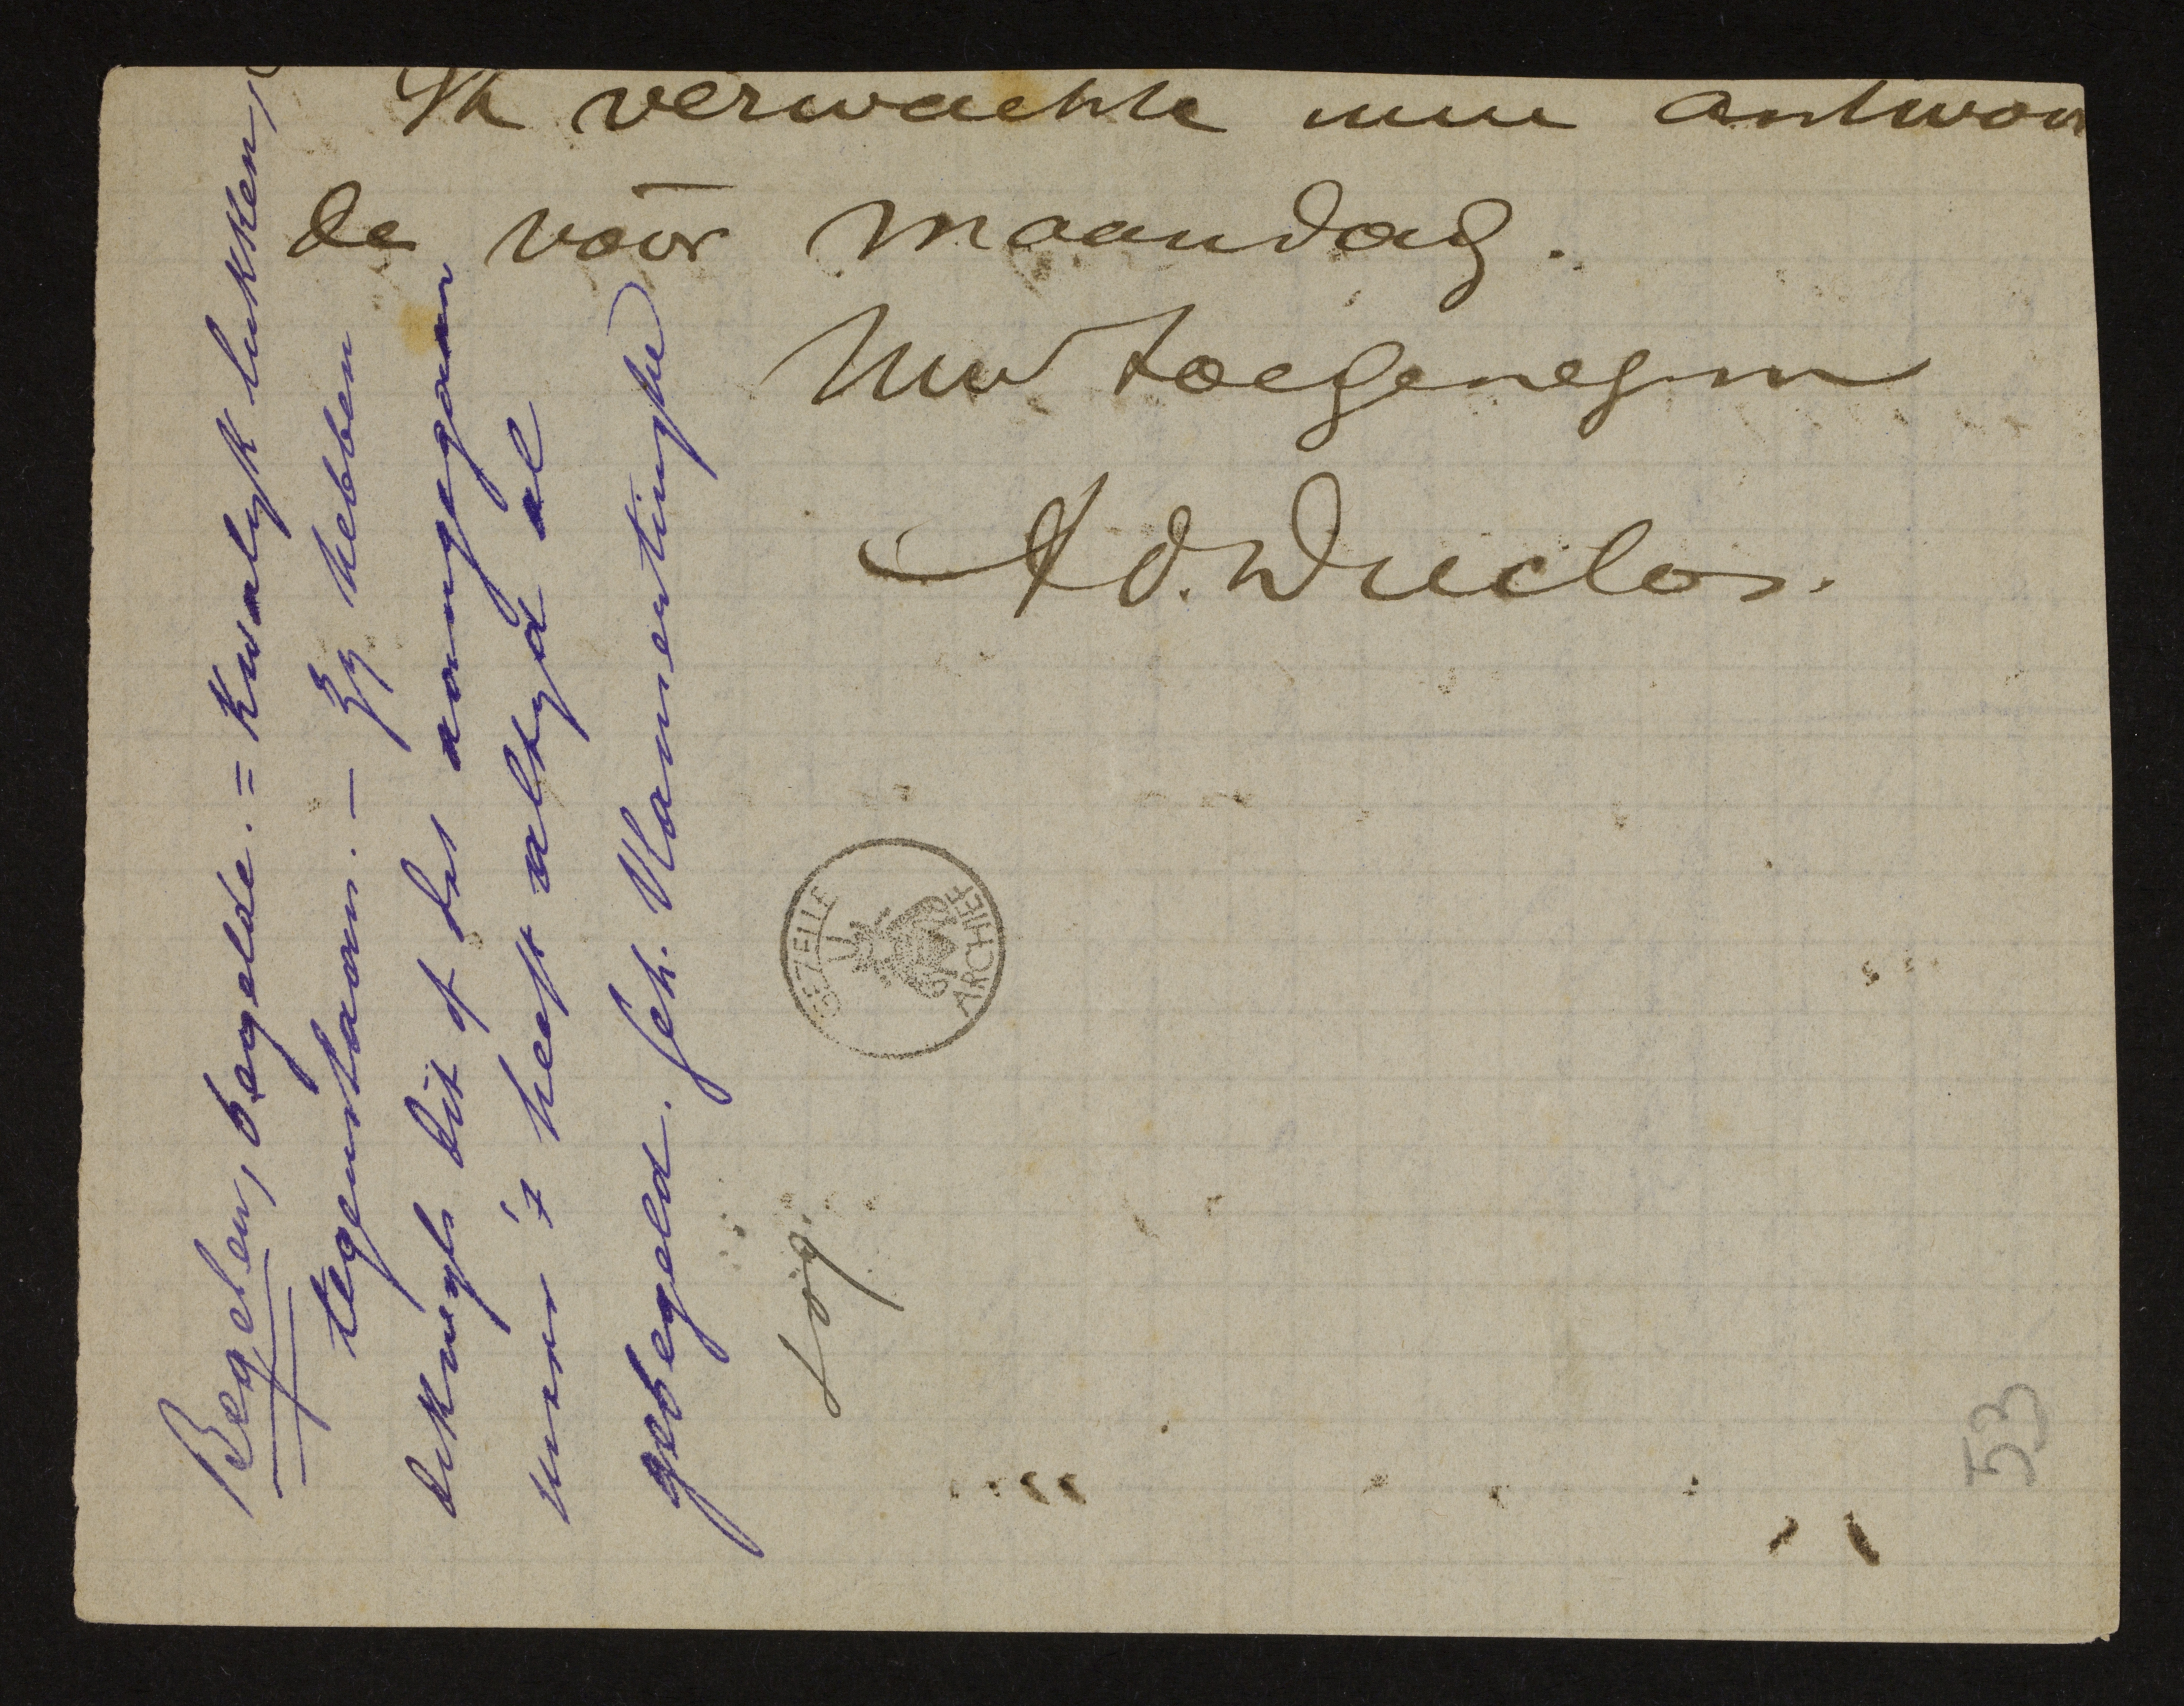 Ik verwachte uwe antwoor
de vóór maandag.
Uw toegenegen
Ad. Duclos.
Begelen, begelde. = Kwalyk lukken,
tegenslaan. – Zy hebben
dikwyls dit of dat aangegaan
maar 't heeft altyd al
gebegeld. Geh. Vlamertinghe
Log.
GEZELLE
ARCHIEF
53